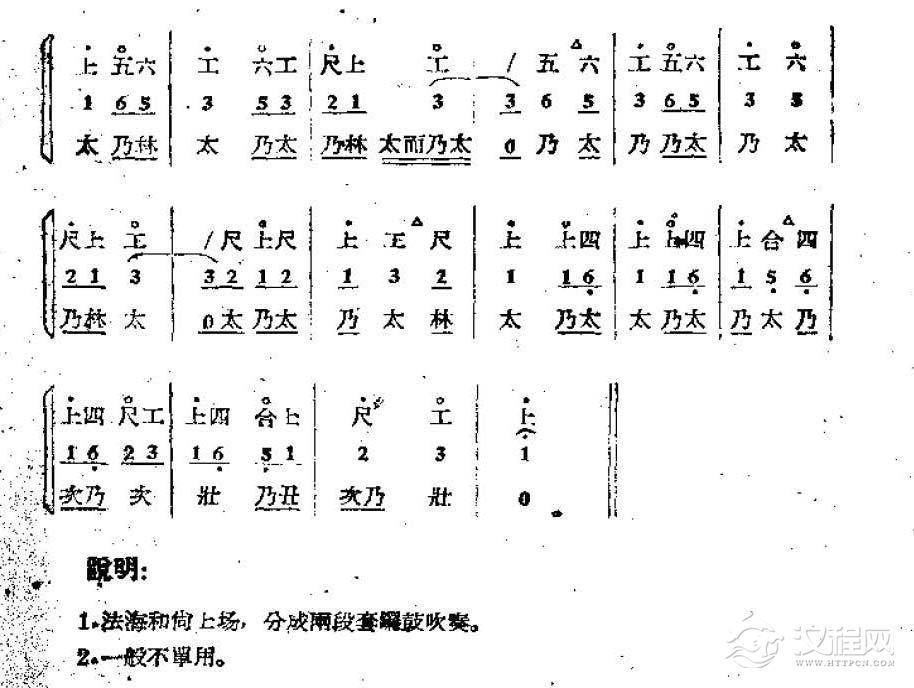 上 五六 | 工 六工 | 尺上 工 | / 五 六 | 工 五六 | 工 六
1 65 | 3 53 | 21 3 | 3 6 5 | 3 65 | 3 5
太 乃林 | 太 乃太 | 乃林 太而乃太 | 0 乃 太 | 乃 乃太 | 乃 太
尺上 工 | / 尺 上尺 | 上 工 尺 | 上 上四 | 上 上四 | 上 合 四
21 3 | 32 12 | 1 3 2 | 1 16 | 1 16 | 1 5 6
乃林 太 | 0太 乃太 | 乃 太 林 | 太 乃太 | 太 乃太 | 乃 太 乃
上四 尺工 | 上四 合上 | 尺 工 | 上
16 23 | 16 51 | 2 3 | 1
次乃 次 | 壯 乃丑 | 次乃 壯 | 0
說明:
1.法海和尙上场，分成兩段套鑼鼓吹奏。
2.一般不單用。
汶程网
WWW.HTTPCN.COM